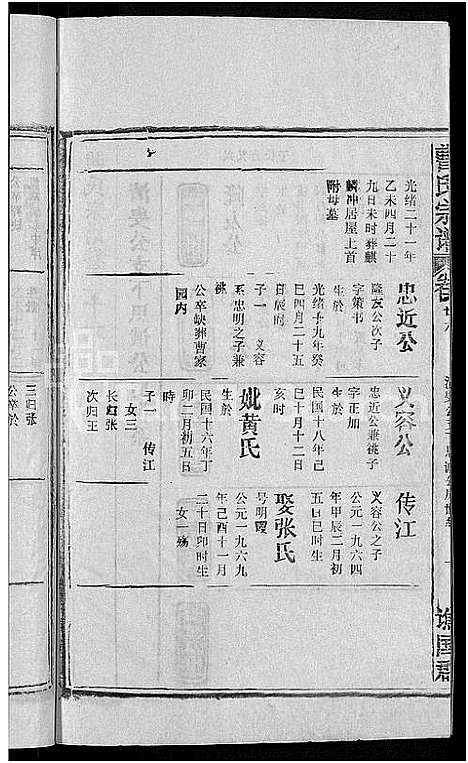 曹氏宗谱
光绪二十一年
乙未四月二十
九日未时葬麒
麟冲居屋上首
附母墓
忠近公
隆友公次子
字策书
生於
光绪十九年癸
巳四月二十五
日辰时
子一 义容
系忠明之子兼
祧
公卒缺葬曹家
园内
义容公
忠近公兼祧子
字正加
生於
民国十八年己
巳十月十二日
亥时
妣黄氏
生於
民国十六年丁
卯二月初五日
時
子一 传江
女三
长归张
次归王
传江
义容公之子
公元一九六四
年甲辰二月初
五日巳时生
娶张氏
号明霞
公元一九六九
年己酉十一月
二十日卯时生
女一殇
三归张
公卒於
谯国郡